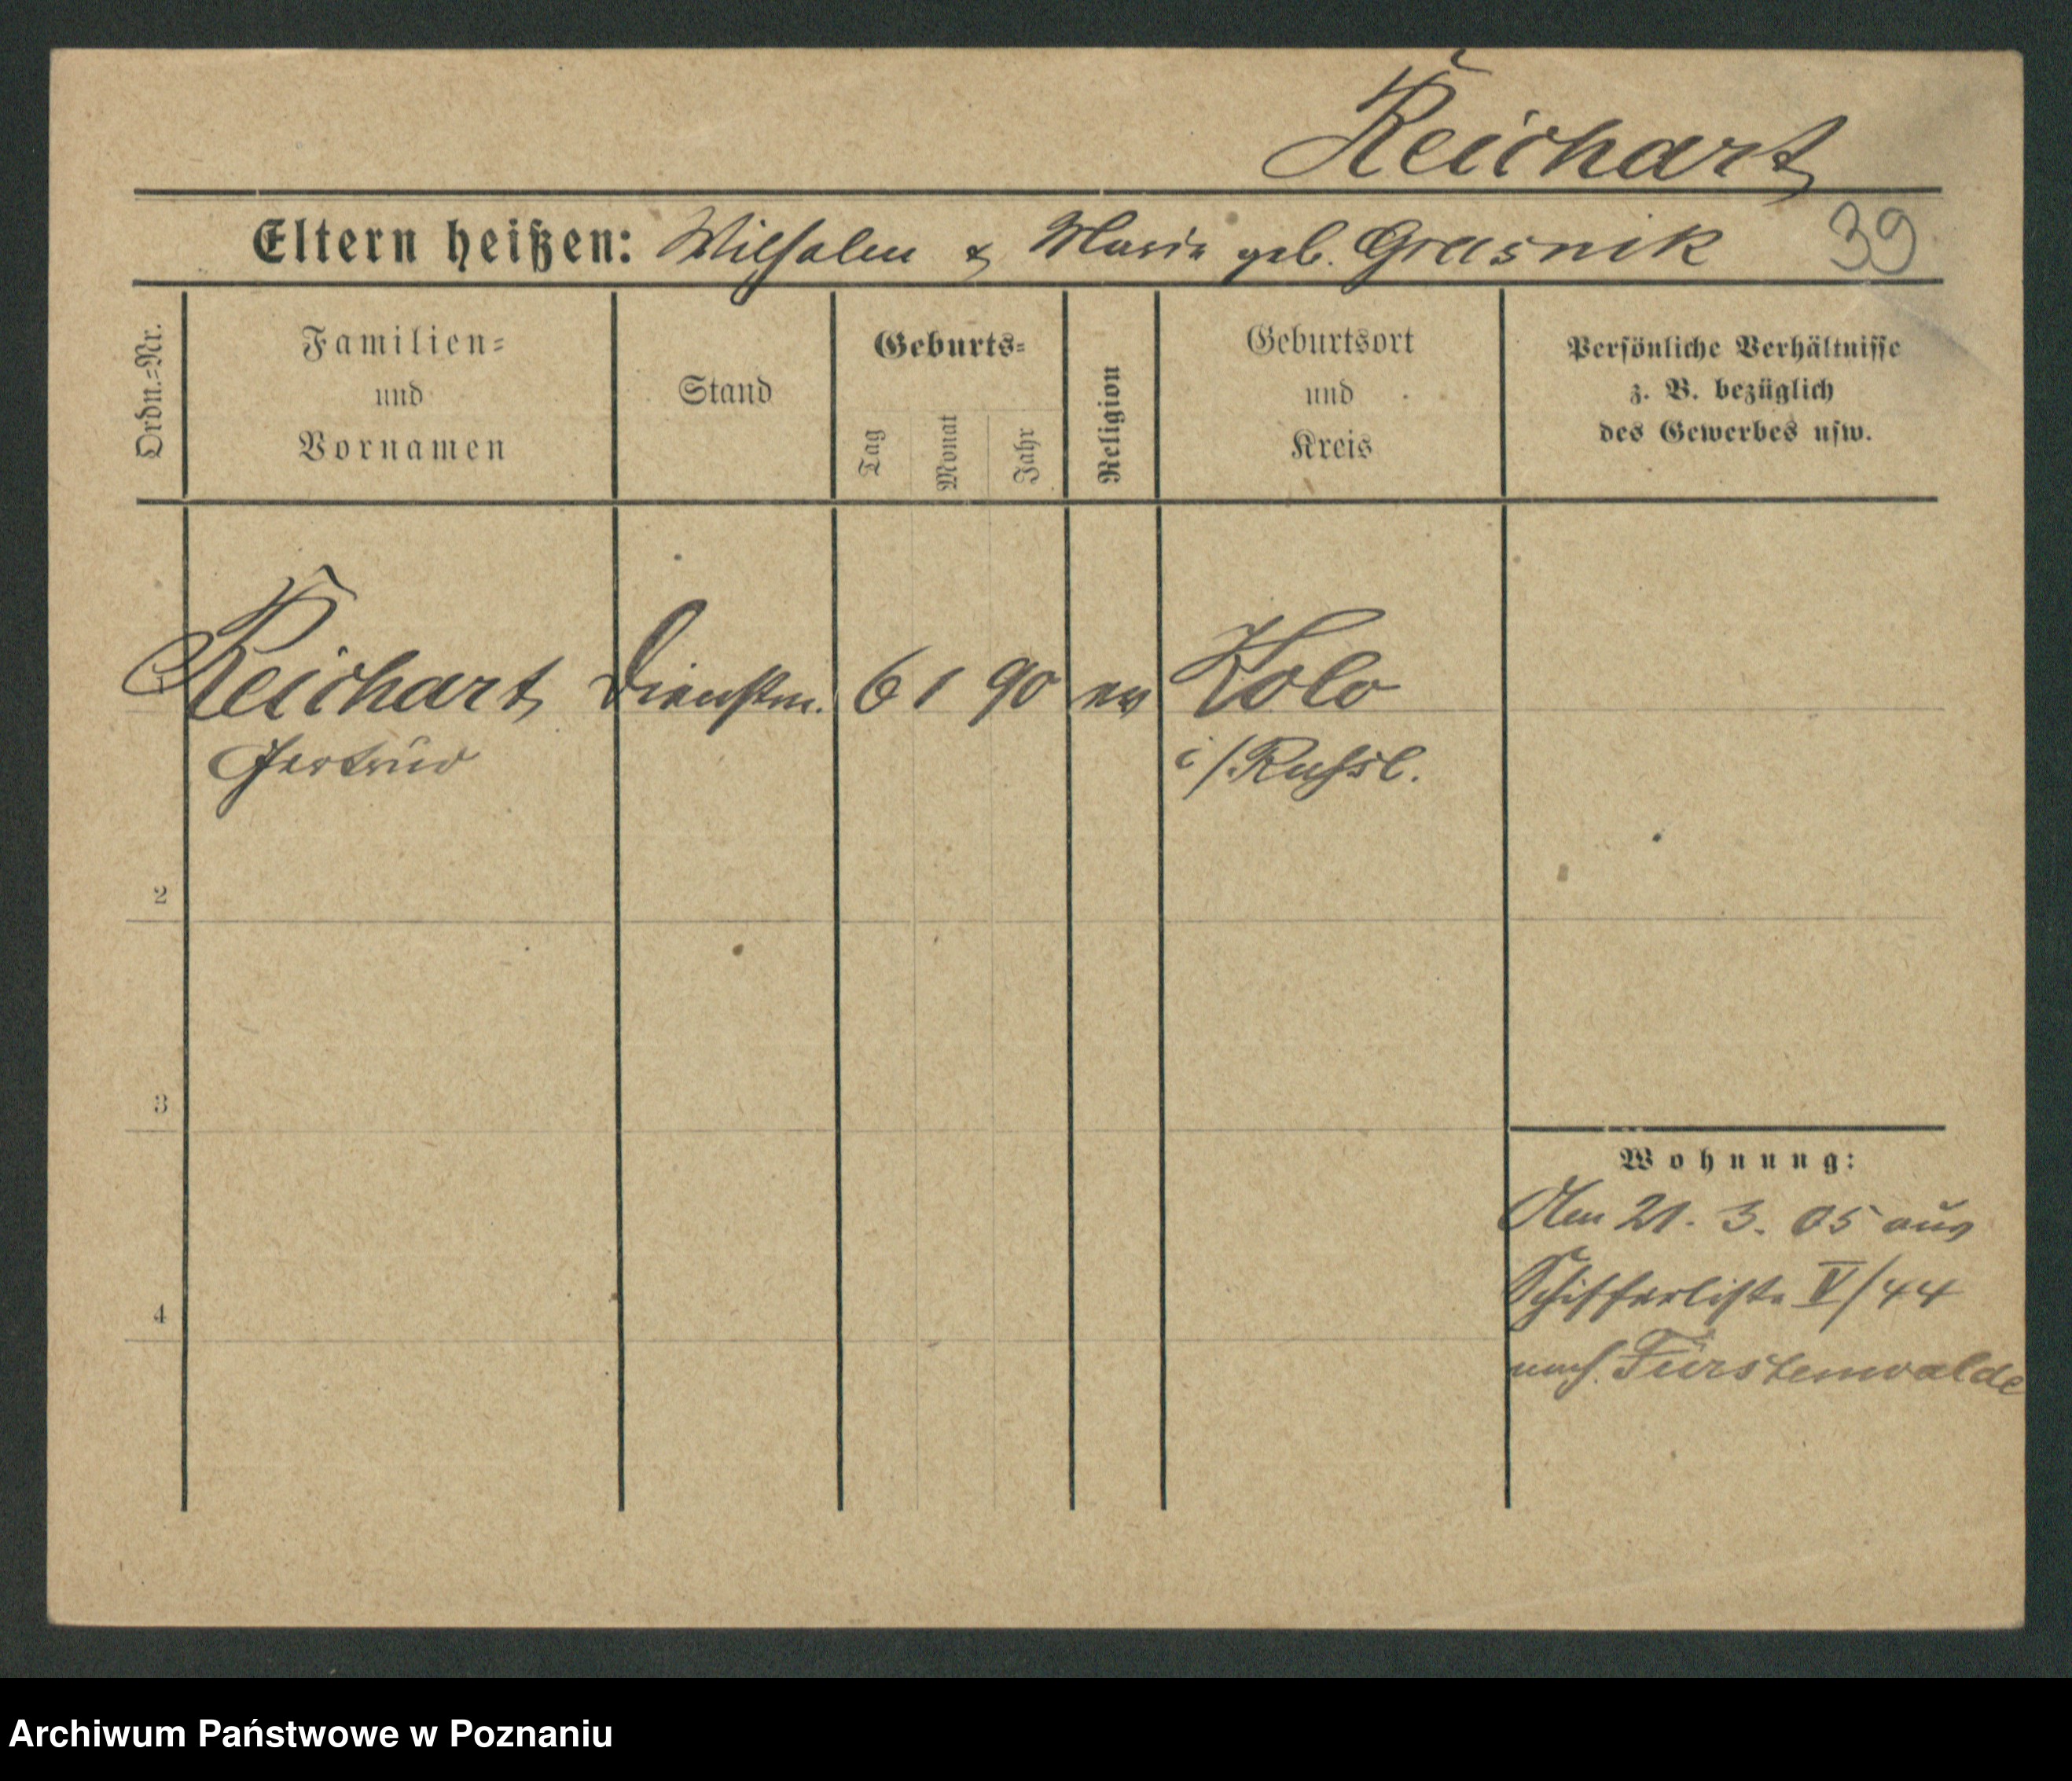 Reichart
Eltern heißen: Wilhelm & Marie geb. Grasnik 39
Ordn.=Nr.
Familien=
und
Vornamen
Stand
Geburts=
Tag
Monat
Jahr
Religion
Geburtsort
und
Kreis
Persönliche Verhältnisse
z. B. bezüglich
des Gewerbes usw.
Reichart Dienstm. 6 1 90 ev Kolo
Gertrud i/Russl.
2
3
4
Wohnung:
Am 21. 3. 05 aus
Schifferliste V/44
nach Fürstenwalde
Archiwum Państwowe w Poznaniu